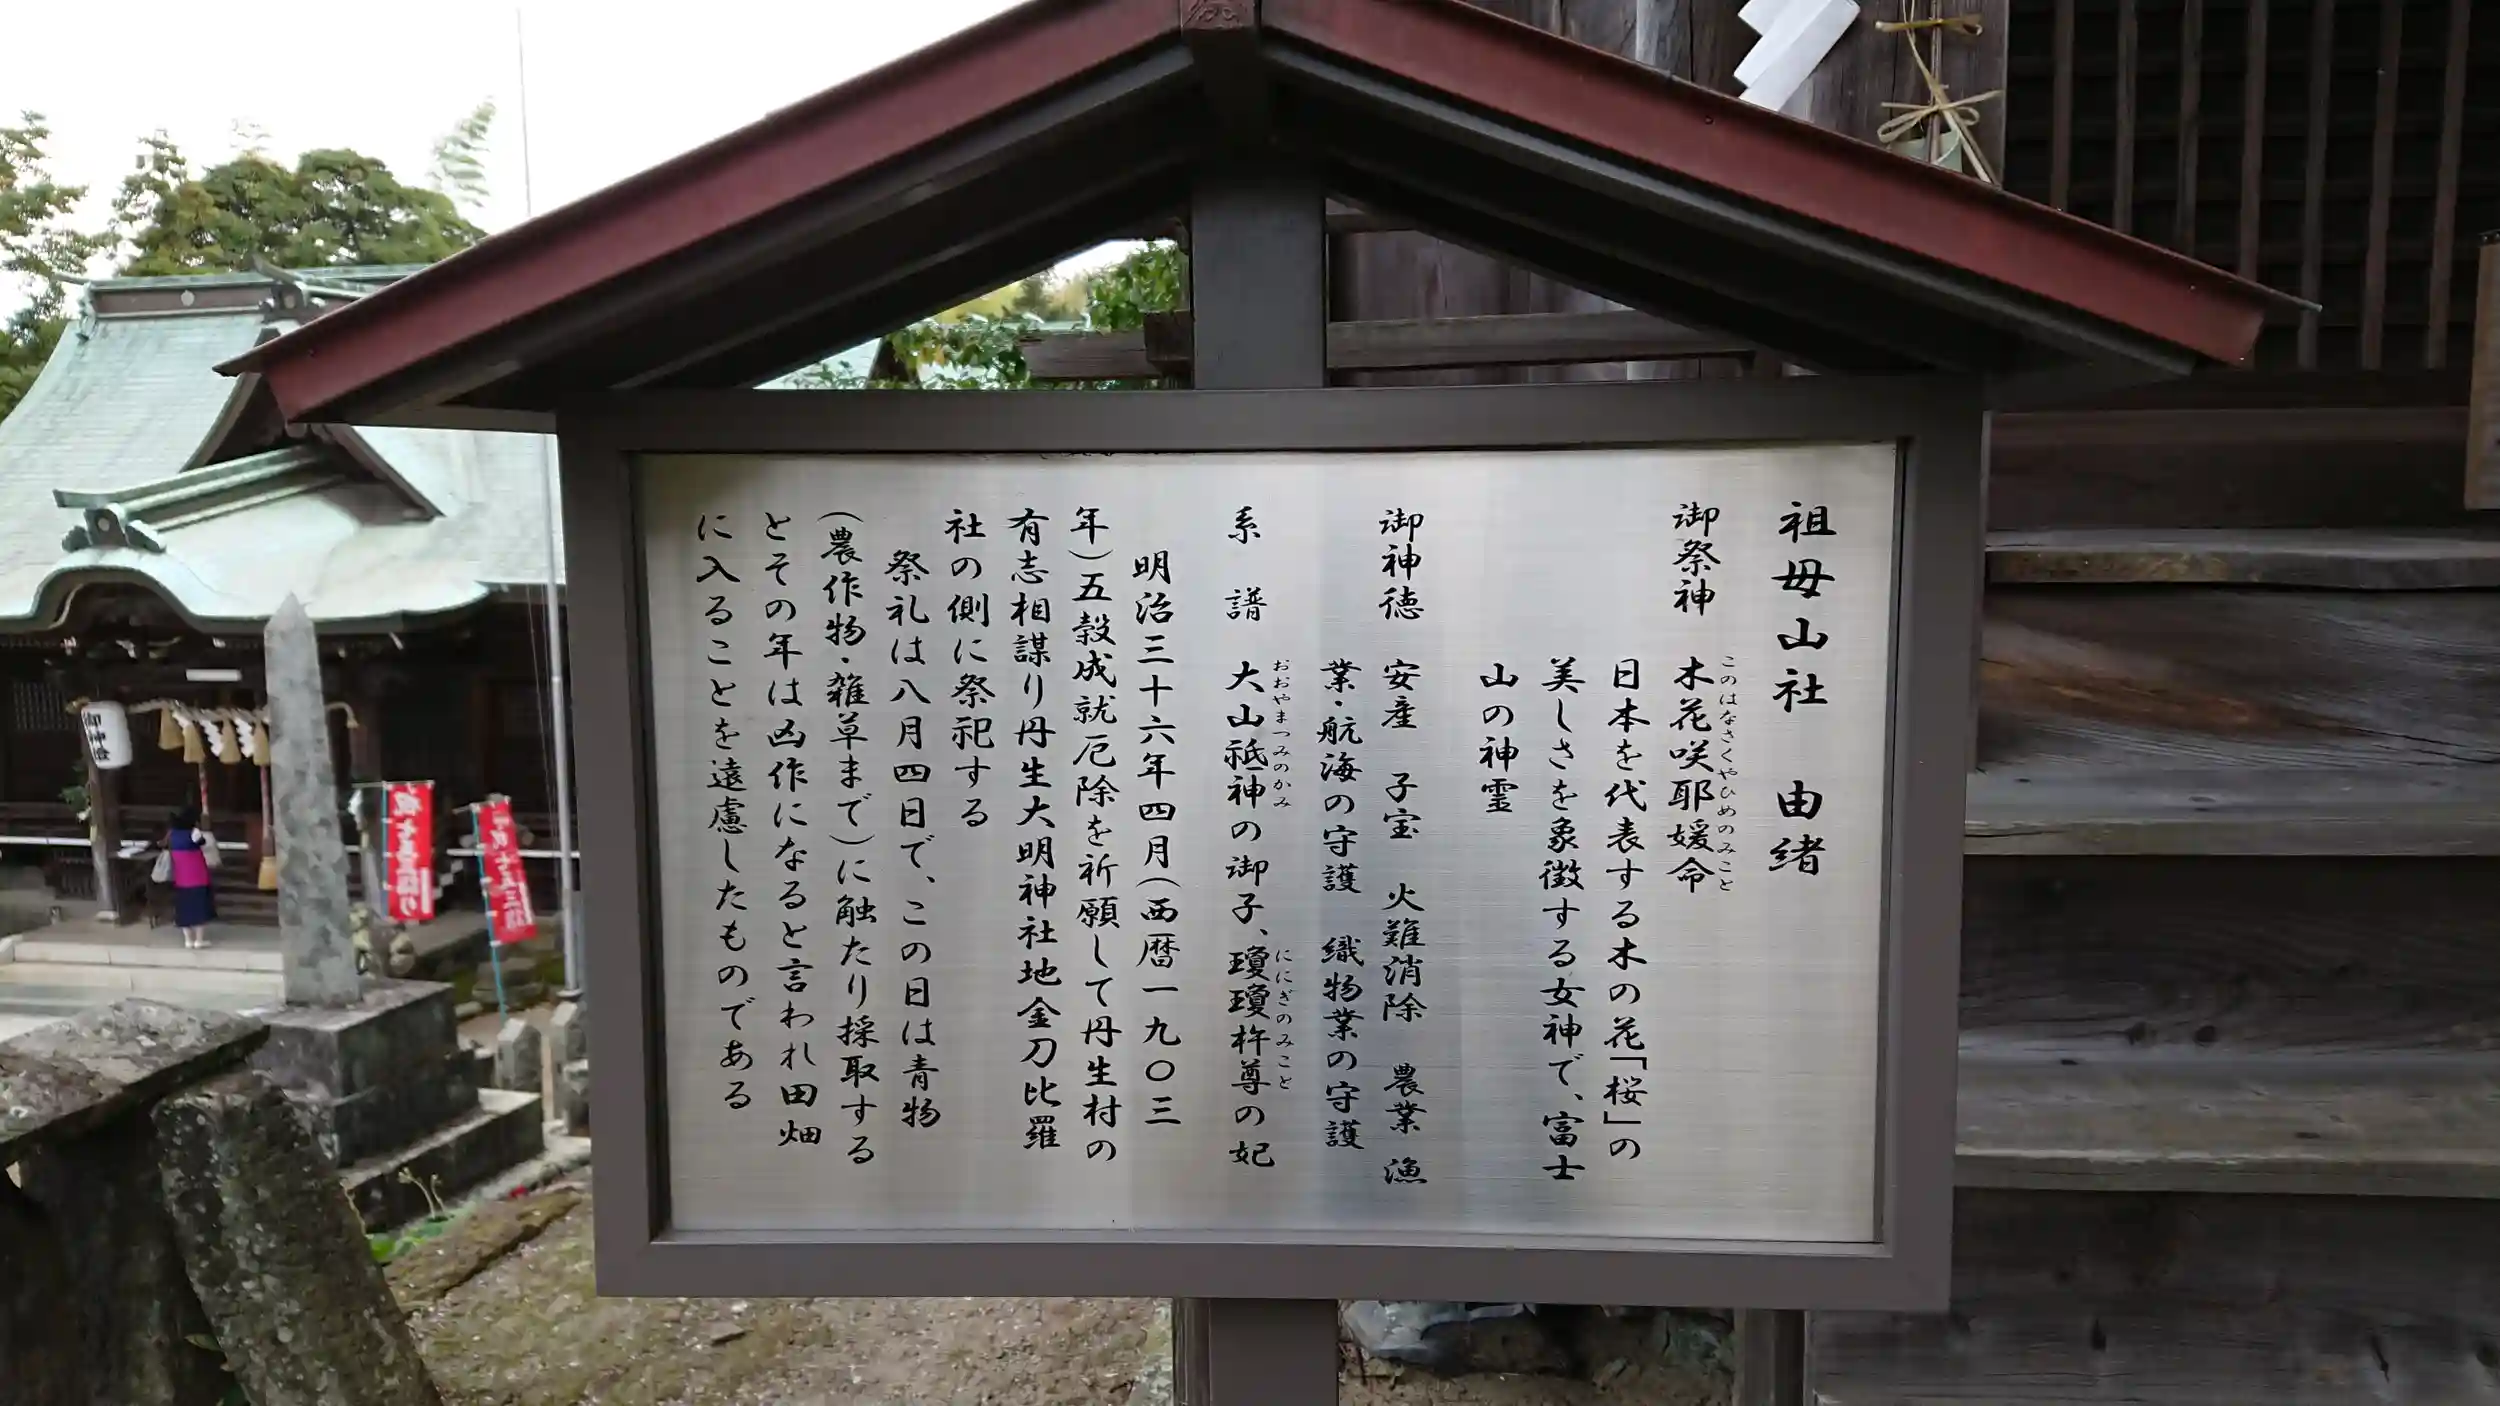 祖母山社　由緒
御祭神　木花咲耶媛命
このはなさくやひめのみこと
日本を代表する木の花「桜」の
美しさを象徴する女神で、富士
山の神霊
御神徳　安産　子宝　火難消除　農業　漁
業・航海の守護　織物業の守護
系　譜　大山祇神の御子、瓊瓊杵尊の妃
おおやまつみのかみ
ににぎのみこと
明治三十六年四月(西暦一九〇三
年)五穀成就厄除を祈願して丹生村の
有志相謀り丹生大明神社地金刀比羅
社の側に祭祀する
祭礼は八月四日で、この日は青物
(農作物・雑草まで)に触たり採取する
とその年は凶作になると言われ田畑
に入ることを遠慮したものである
御神燈
祝七五三詣り
祝七五三詣